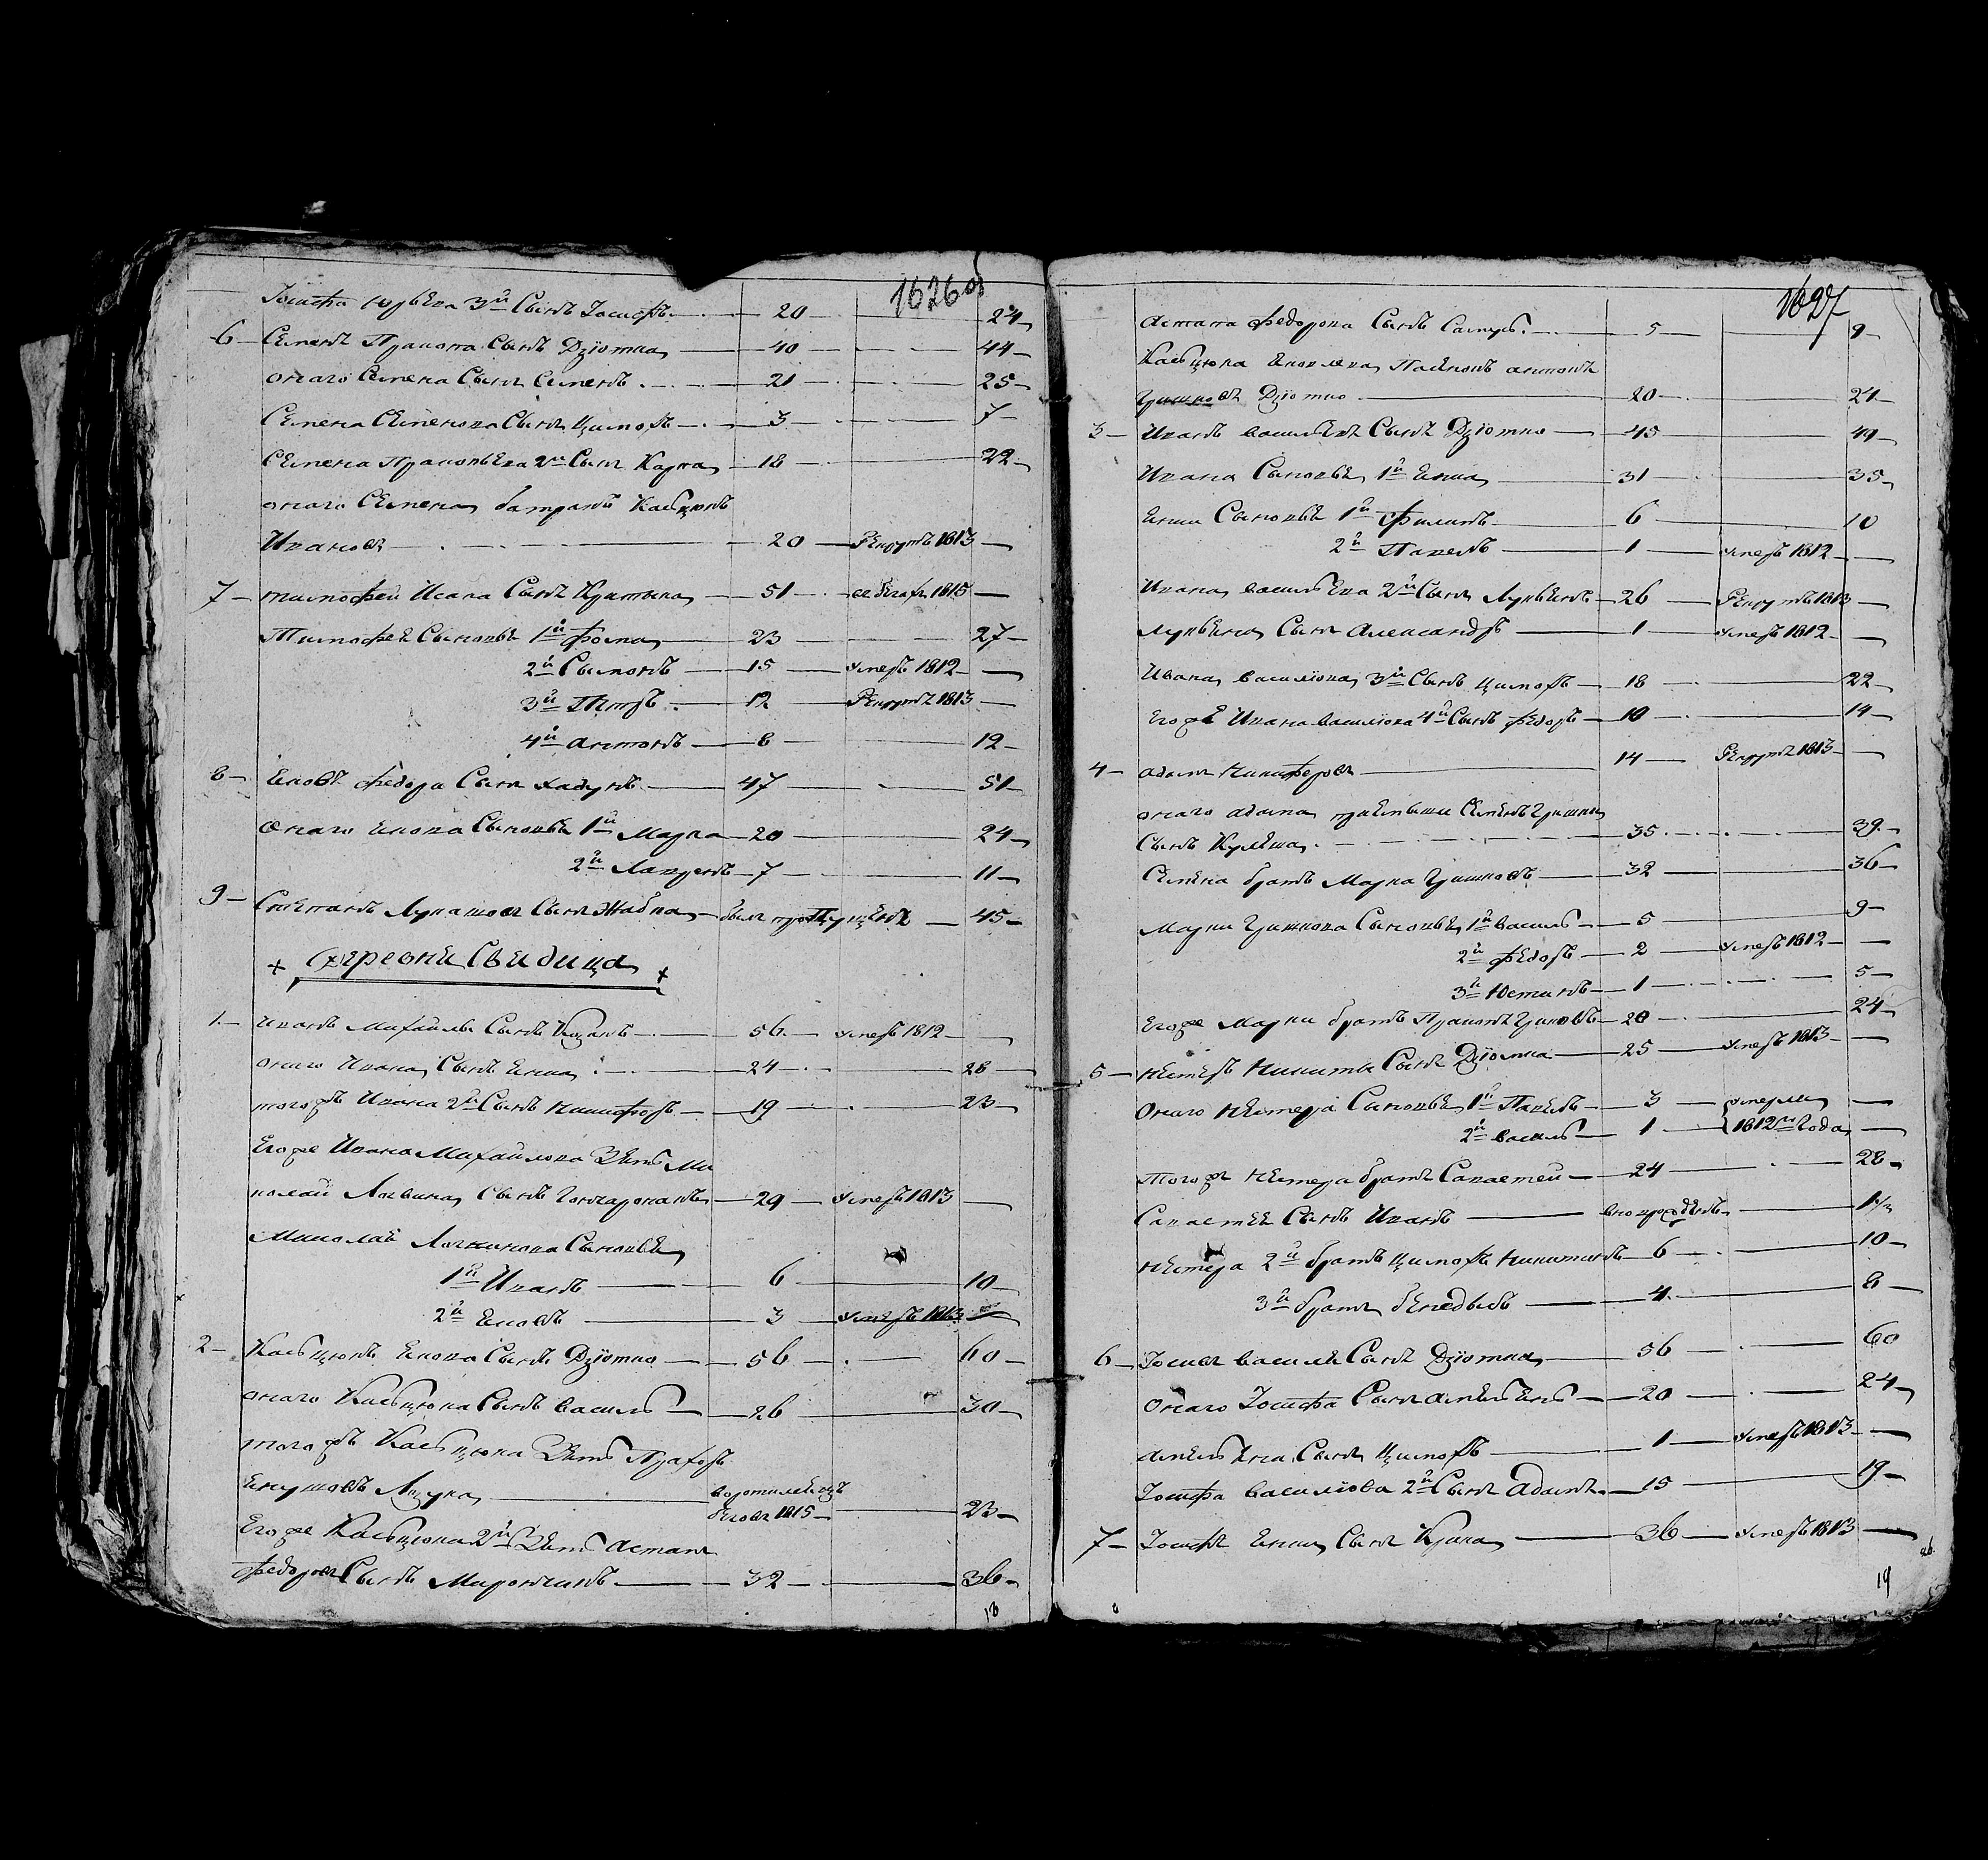 1626 об
Іосифа Юрьева 3й Сынъ Іосифъ 20 24
6 Семенъ Пракопа Сынъ Дзіомка 40 44
онаго Семена Сынъ Семенъ 21 25
Семена Семенова Сынъ Цимохъ 3 7
Семена Пракопьева 2й Сынъ Карпа 18 22
онаго Семена батракъ Касцюкъ
Ивановъ 20 Рекрутъ 1813
7 Тимофей Исака Сынъ 51 1815
Тимофея Сыновья 1й Фома 23 27
2й Сымонъ 15 умеръ 1812
3й Пётръ 12 Рекрутъ 1813
4й Антонъ 8 12
8 Яковъ Федора Сынъ 47 51
Онаго Якова Сыновья 1й Марка 20 24
2й Лавренъ 7 11
9 Степанъ Лукашовъ Сынъ Жабка былъ пропущенъ 45
1 Иванъ Михайлы Сынъ Козакъ 56 умеръ 1812
онаго Ивана Сынъ Янка 24 28
тогожъ Ивана 2й Сынъ Никифоръ 19 23
Егоже Ивана Михайлова Зять Ми
колай Логвина Сынъ Гончаронакъ 29 умеръ 1813
Миколая Логвинова Сыновья
1й Иванъ 6 10
2й Яковъ 3 умеръ 1813
2 Касцюкъ Якова Сынъ Дзіомко 56 60
онаго Касцюка Сынъ Василь 26 30
тогожъ Касцюка Зять Прахоръ
Янушовъ 
1815 23
Егоже Касцюка 2й Зять Астапъ
Федоровъ Сынъ Мирончикъ 32 36
18
1627
Астапа Федорова Сынъ Самусь 5 9
Касцюка Яковлева Антонъ
Гришковъ Дзіомко 20 24
3 Иванъ Васильевъ Сынъ Дзіомко 45 49
Ивана Сыновья 1й Янка 31 35
Янки Сыновья 1й Филипъ 6 10
2й Павелъ 1 умеръ 1812
Ивана Васильева 2й Сынъ Лукьянъ 26 Рекрутъ 1813
Лукьяна Сынъ Александръ 1 умеръ 1812
Ивана Василіова 3й Сынъ Цимохъ 18 22
Егоже Ивана Василіова 4й Сынъ Федоръ 10 14
4 Адамъ Никифоровъ 14 Рекрутъ 1813
онаго Адама Семенъ Гришки
Сынъ Кулеша 35 39
Семена братъ Марка Гришковъ 32 36
Марки Гришкова Сыновья 1й Василь 5 9
2й Федоръ 2 умеръ 1812
3й Юстинъ 1 5
Егоже Марки братъ Пракопъ Гришковъ 20 24
5 Нестеръ Никиты Сынъ Дзіомка 25 умеръ 1813
Онаго Нестера Сыновья 1й Павелъ 3 умерли
2й Василь 1 1812го Года
Тогожъ Нестера братъ Савастей 24 28
Савастея Сынъ Иванъ 1½
Нестера 2й братъ Цимохъ Никитинъ 6 10
3й братъ Бенедыкъ 4 8
6 Іосифъ Василя Сынъ Дзіомка 56 60
Онаго Іосифа Сынъ 20 24
Сынъ Цимохъ 1 умеръ 1813
Іосифа Василіова 2й Сынъ Адамъ 15 19
7 Іосифъ Янки Сынъ 36 умеръ 1813
19